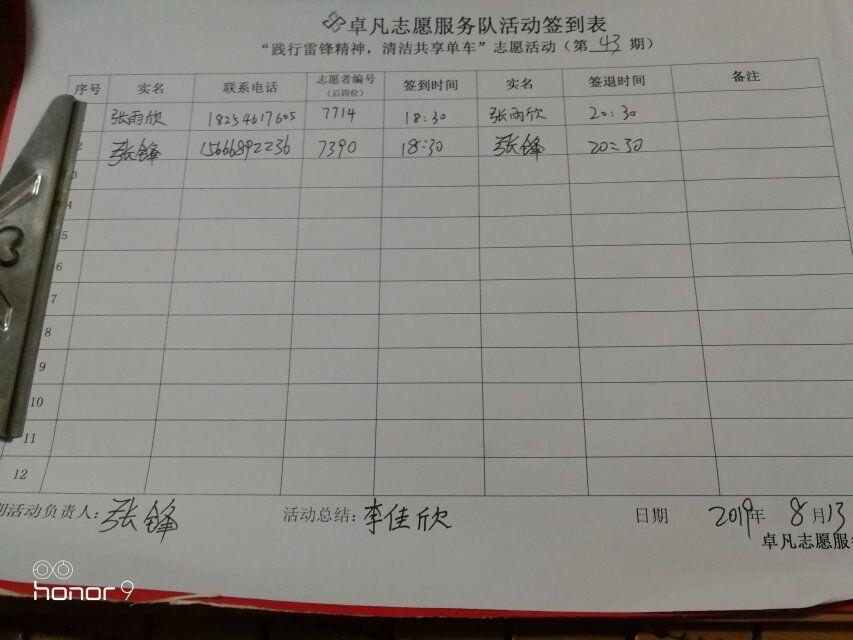 卓凡志愿服务队活动签到表
“践行雷锋精神，清洁共享单车”志愿活动（第 43 期）
序号 实名 联系电话 志愿者编号（后四位） 签到时间 实名 签退时间 备注
张雨欣 18254617605 7714 18:30 张雨欣 20:30
2 张锋 15666892236 7390 18:30 张锋 20:30
3
4
5
6
7
8
9
10
11
12
期活动负责人：张锋 活动总结：李佳欣 日期 2019年 8月13
卓凡志愿服务
honor 9